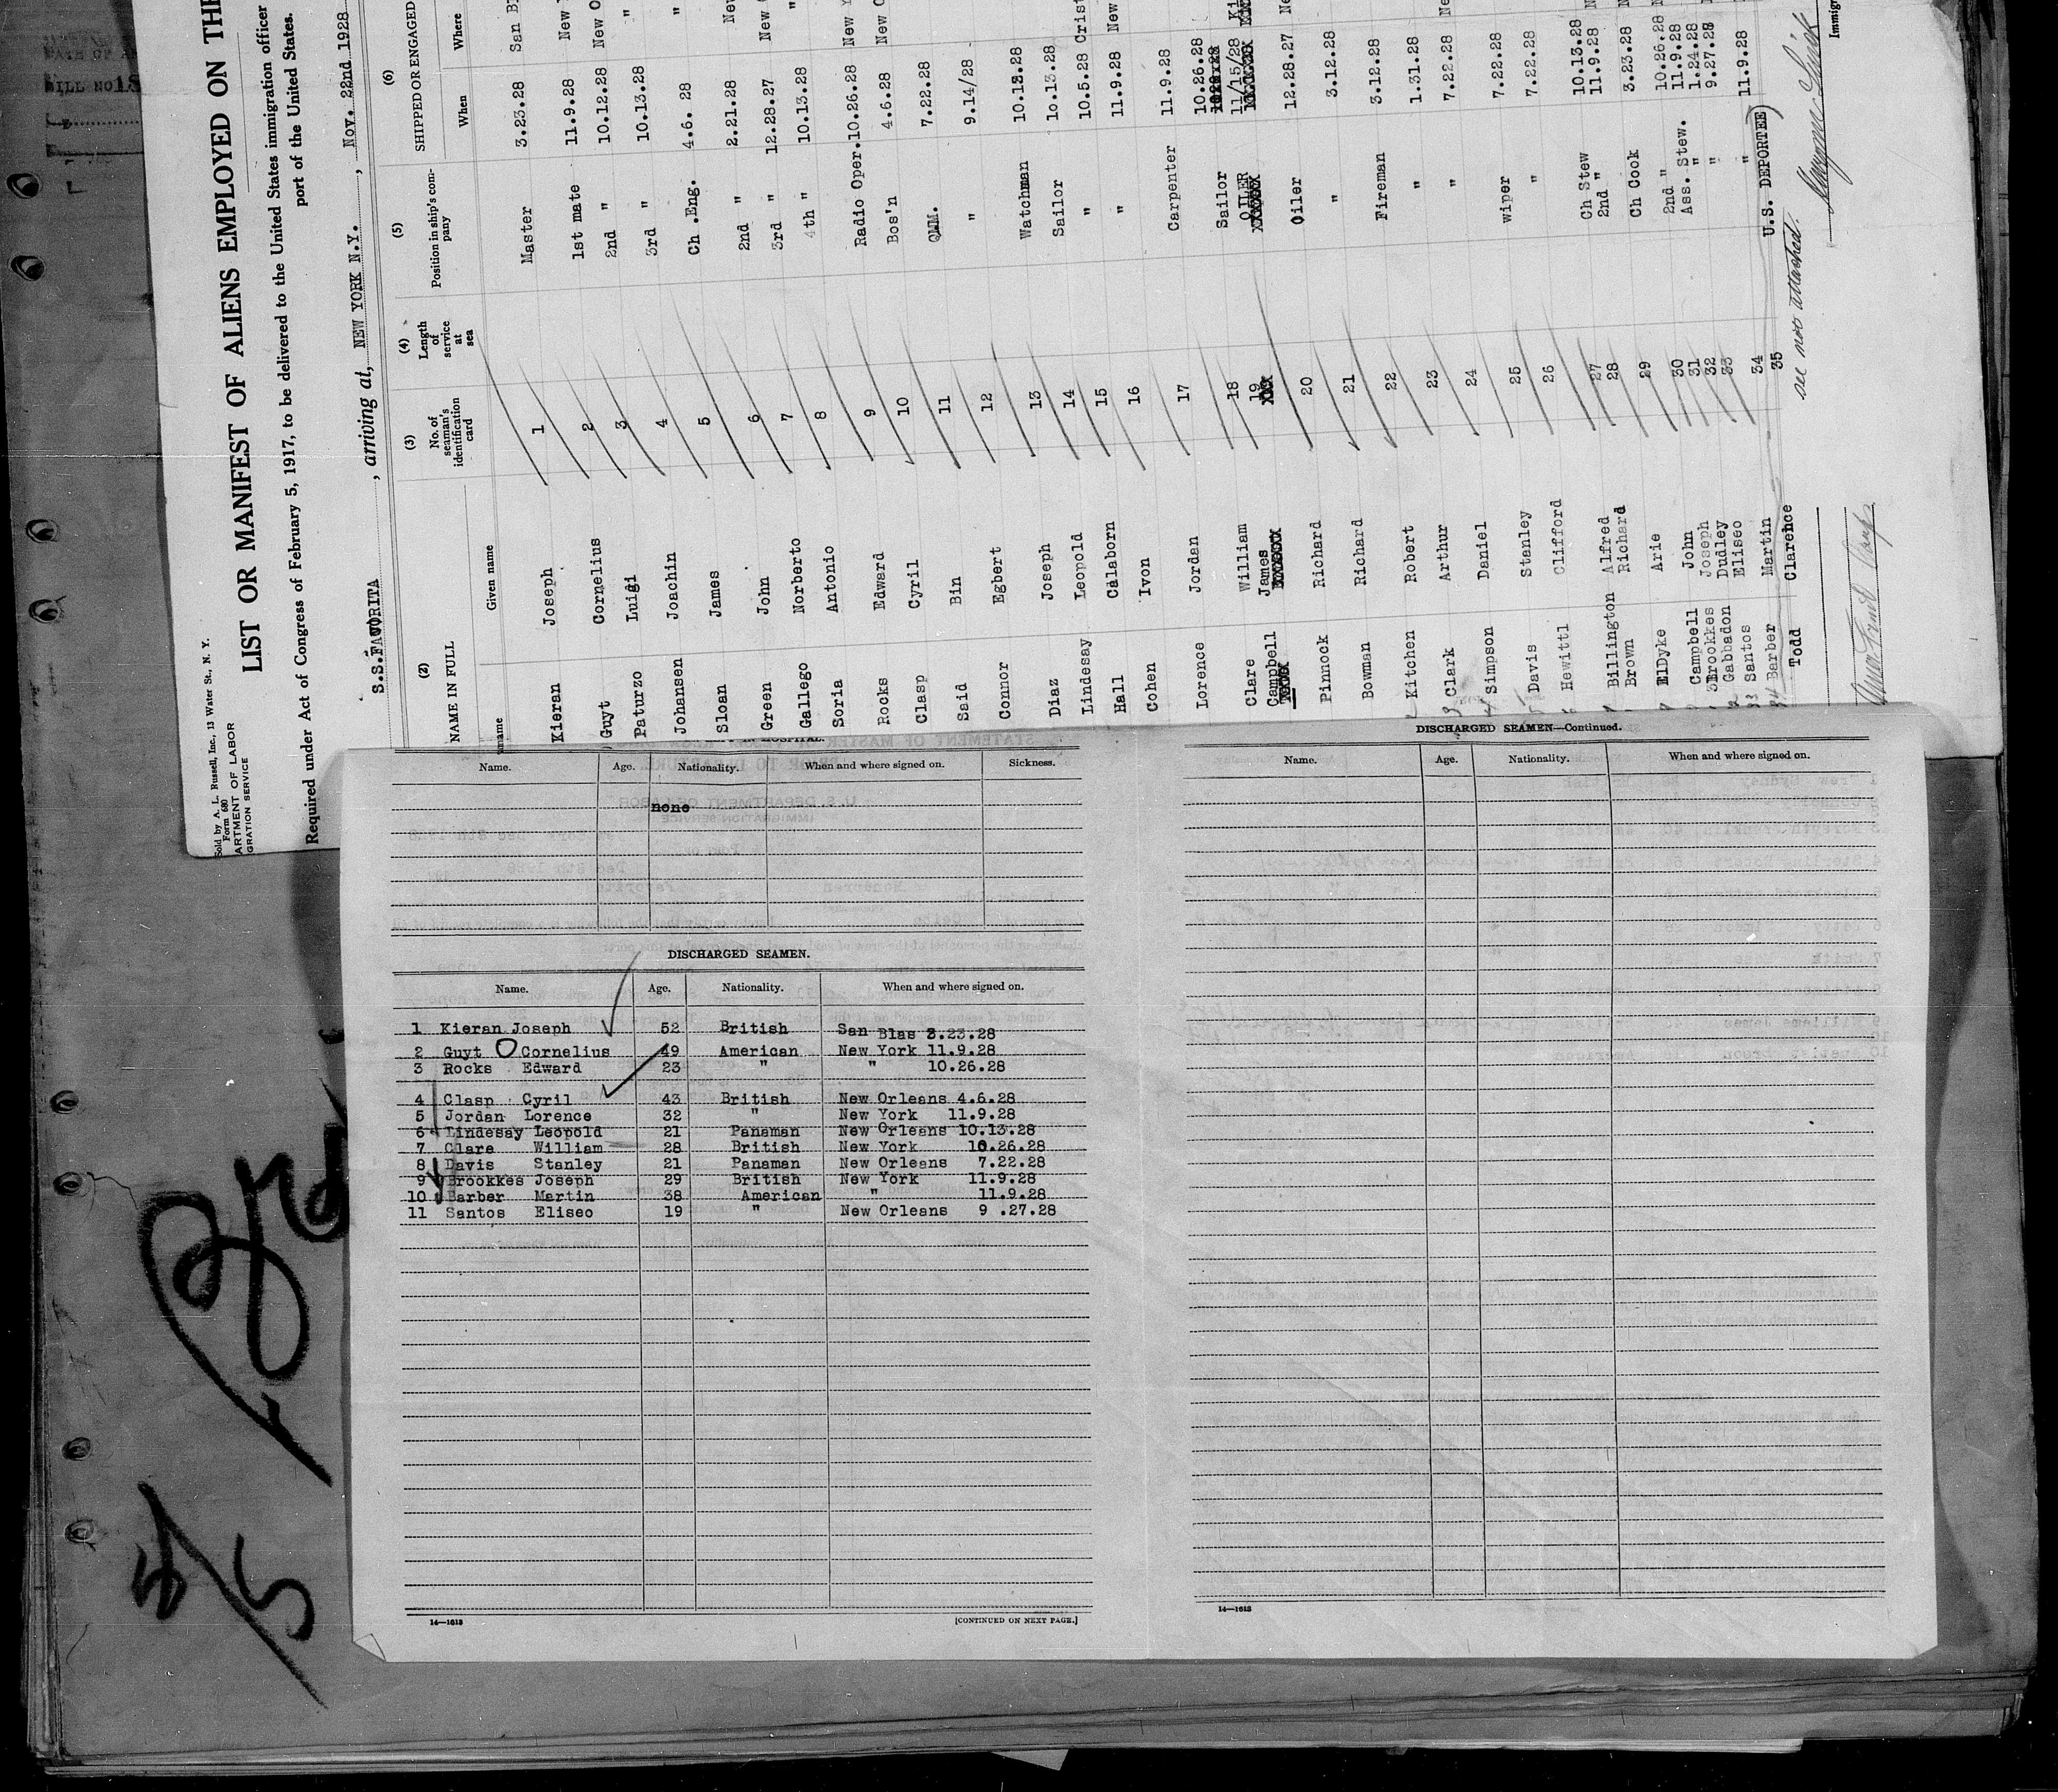 Sold by A. L. Russell, Inc., 13 Water St., N. Y.
Form 680
ARTMENT OF LABOR
GRATION SERVICE
LIST OR MANIFEST OF ALIENS EMPLOYED ON THE
Required under Act of Congress of February 5, 1917, to be delivered to the United States immigration officer
port of the United States.
S.S.FAVORITA , arriving at, NEW YORK N.Y. , Nov. 22nd 1928
(2) (3) (4) (5) (6)
NAME IN FULL No. of seaman's identification card Length of service at sea Position in ship's company SHIPPED OR ENGAGED
Given name When Where
Kieran Joseph 1 Master 3.23.28 San B
Guyt Cornelius 2 1st mate 11.9.28 New
Paturzo Luigi 3 2nd " 10.12.28 New O
Johansen Joachin 4 3rd " 10.13.28 "
Sloan James 5 Ch.Eng. 4.6. 28 "
Green John 6 2nd " 2.21.28 New
Gallego Norberto 7 3rd " 12.28.27 New
Soria Antonio 8 4th " 10.13.28 "
Rocks Edward 9 Radio Oper. 10.26.28 New Y
Clasp Cyril 10 Bos'n 4.6.28 New O
Said Bin 11 QMM. 7.22.28
Connor Egbert 12 " 9.14/28
Diaz Joseph 13 Watchman 10.13.28
Lindesay Leopold 14 Sailor 10.13.28
Hall Calaborn 15 " 10.5.28 Crist
Cohen Ivon 16 " 11.9.28 New
Lorence Jordan 17 Carpenter 11.9.28
Clare William 18 Sailor 10.26.28
Campbell James 19 OILER 11/15/28 Ki
Pinnock Richard 20 Oiler 12.28.27 Ne
Bowman Richard 21 " 3.12.28
Kitchen Robert 22 Fireman 3.12.28
Clark Arthur 23 " 1.31.28
Simpson Daniel 24 " 7.22.28 Ne
Davis Stanley 25 wiper 7.22.28
Hewittl Clifford 26 " 7.22.28
Billington Alfred 27 Ch Stew 10.13.28
Brown Richard 28 2nd " 11.9.28
ElDyke Arie 29 Ch Cook 3.23.28
Campbell John 30 2nd " 10.26.28
Brookkes Joseph 31 Ass. Stew. 11.9.28
Gabbadon Dudley 32 " 1.24.28
Santos Eliseo 33 " 9.27.28
Barber Martin 34 " 11.9.28
Todd Clarence 35 U.S. DEPORTEE)
see not attached.
Name. Age. Nationality. When and where signed on. Sickness.
none
DISCHARGED SEAMEN.
Name. Age. Nationality. When and where signed on.
1 Kieran Joseph 52 British San Blas 3.23.28
2 Guyt Cornelius 49 American New York 11.9.28
3 Rocks Edward 23 " " 10.26.28
4 Clasp Cyril 43 British New Orleans 4.6.28
5 Jordan Lorence 32 " New York 11.9.28
6 Lindesay Leopold 21 Panaman New Orleans 10.13.28
7 Clare William 28 British New York 10.26.28
8 Davis Stanley 21 Panaman New Orleans 7.22.28
9 Brookkes Joseph 29 British New York 11.9.28
10 Barber Martin 38 American " 11.9.28
11 Santos Eliseo 19 " New Orleans 9 .27.28
14—1613
[CONTINUED ON NEXT PAGE.]
DISCHARGED SEAMEN—Continued.
Name. Age. Nationality. When and where signed on.
14—1613